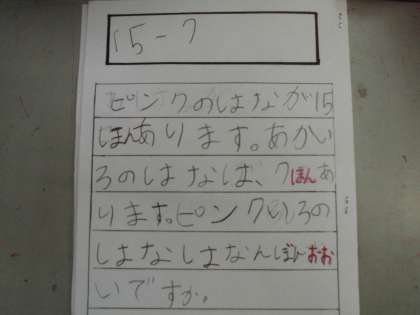 15-7
ピンクのはなが15
ほんあります。あかい
ろのはなは、7ほんあ
ります。ピンクいろの
はなはなんぼんおお
いですか。